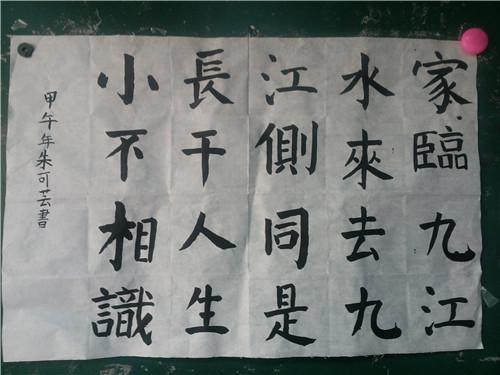 家臨九江
水來去九
江側同是
長干人生
小不相識
甲午年朱可芸書